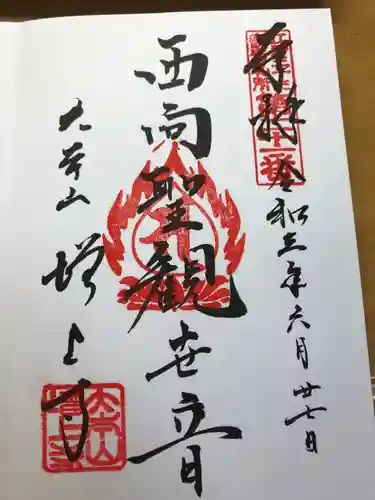 奉拝
令和三年六月廿七日
西向聖観世音
大本山
増上寺